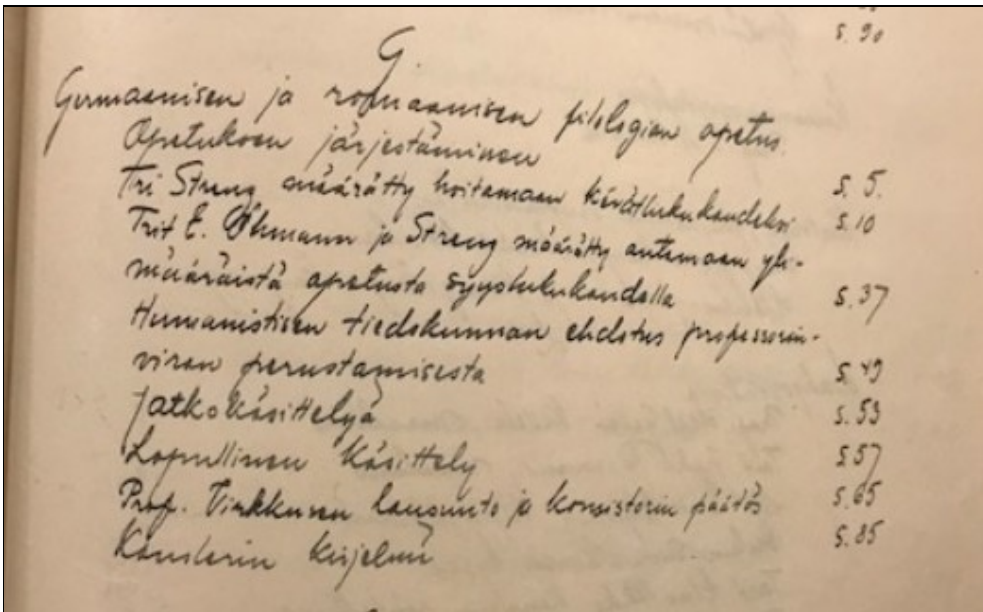 s. 90
G.
Germaanisen ja romaanisen filologian opetus.
Opetuksen järjestäminen s. 5.
Tri Streng määrätty hoitamaan kevätlukukaudeksi s. 10
Trit E. Öhmann ja Streng määrätty antamaan yli-
määräistä opetusta syyslukukaudella s. 37
Humanistisen tiedekunnan ehdotus professorin-
viran perustamisesta s. 49
Jatkokäsittelyä s. 53
Lopullinen käsittely s. 57
Prof. Virkkusen lausunto ja konsistorin päätös s. 65
Kanslerin kirjelmä s. 85